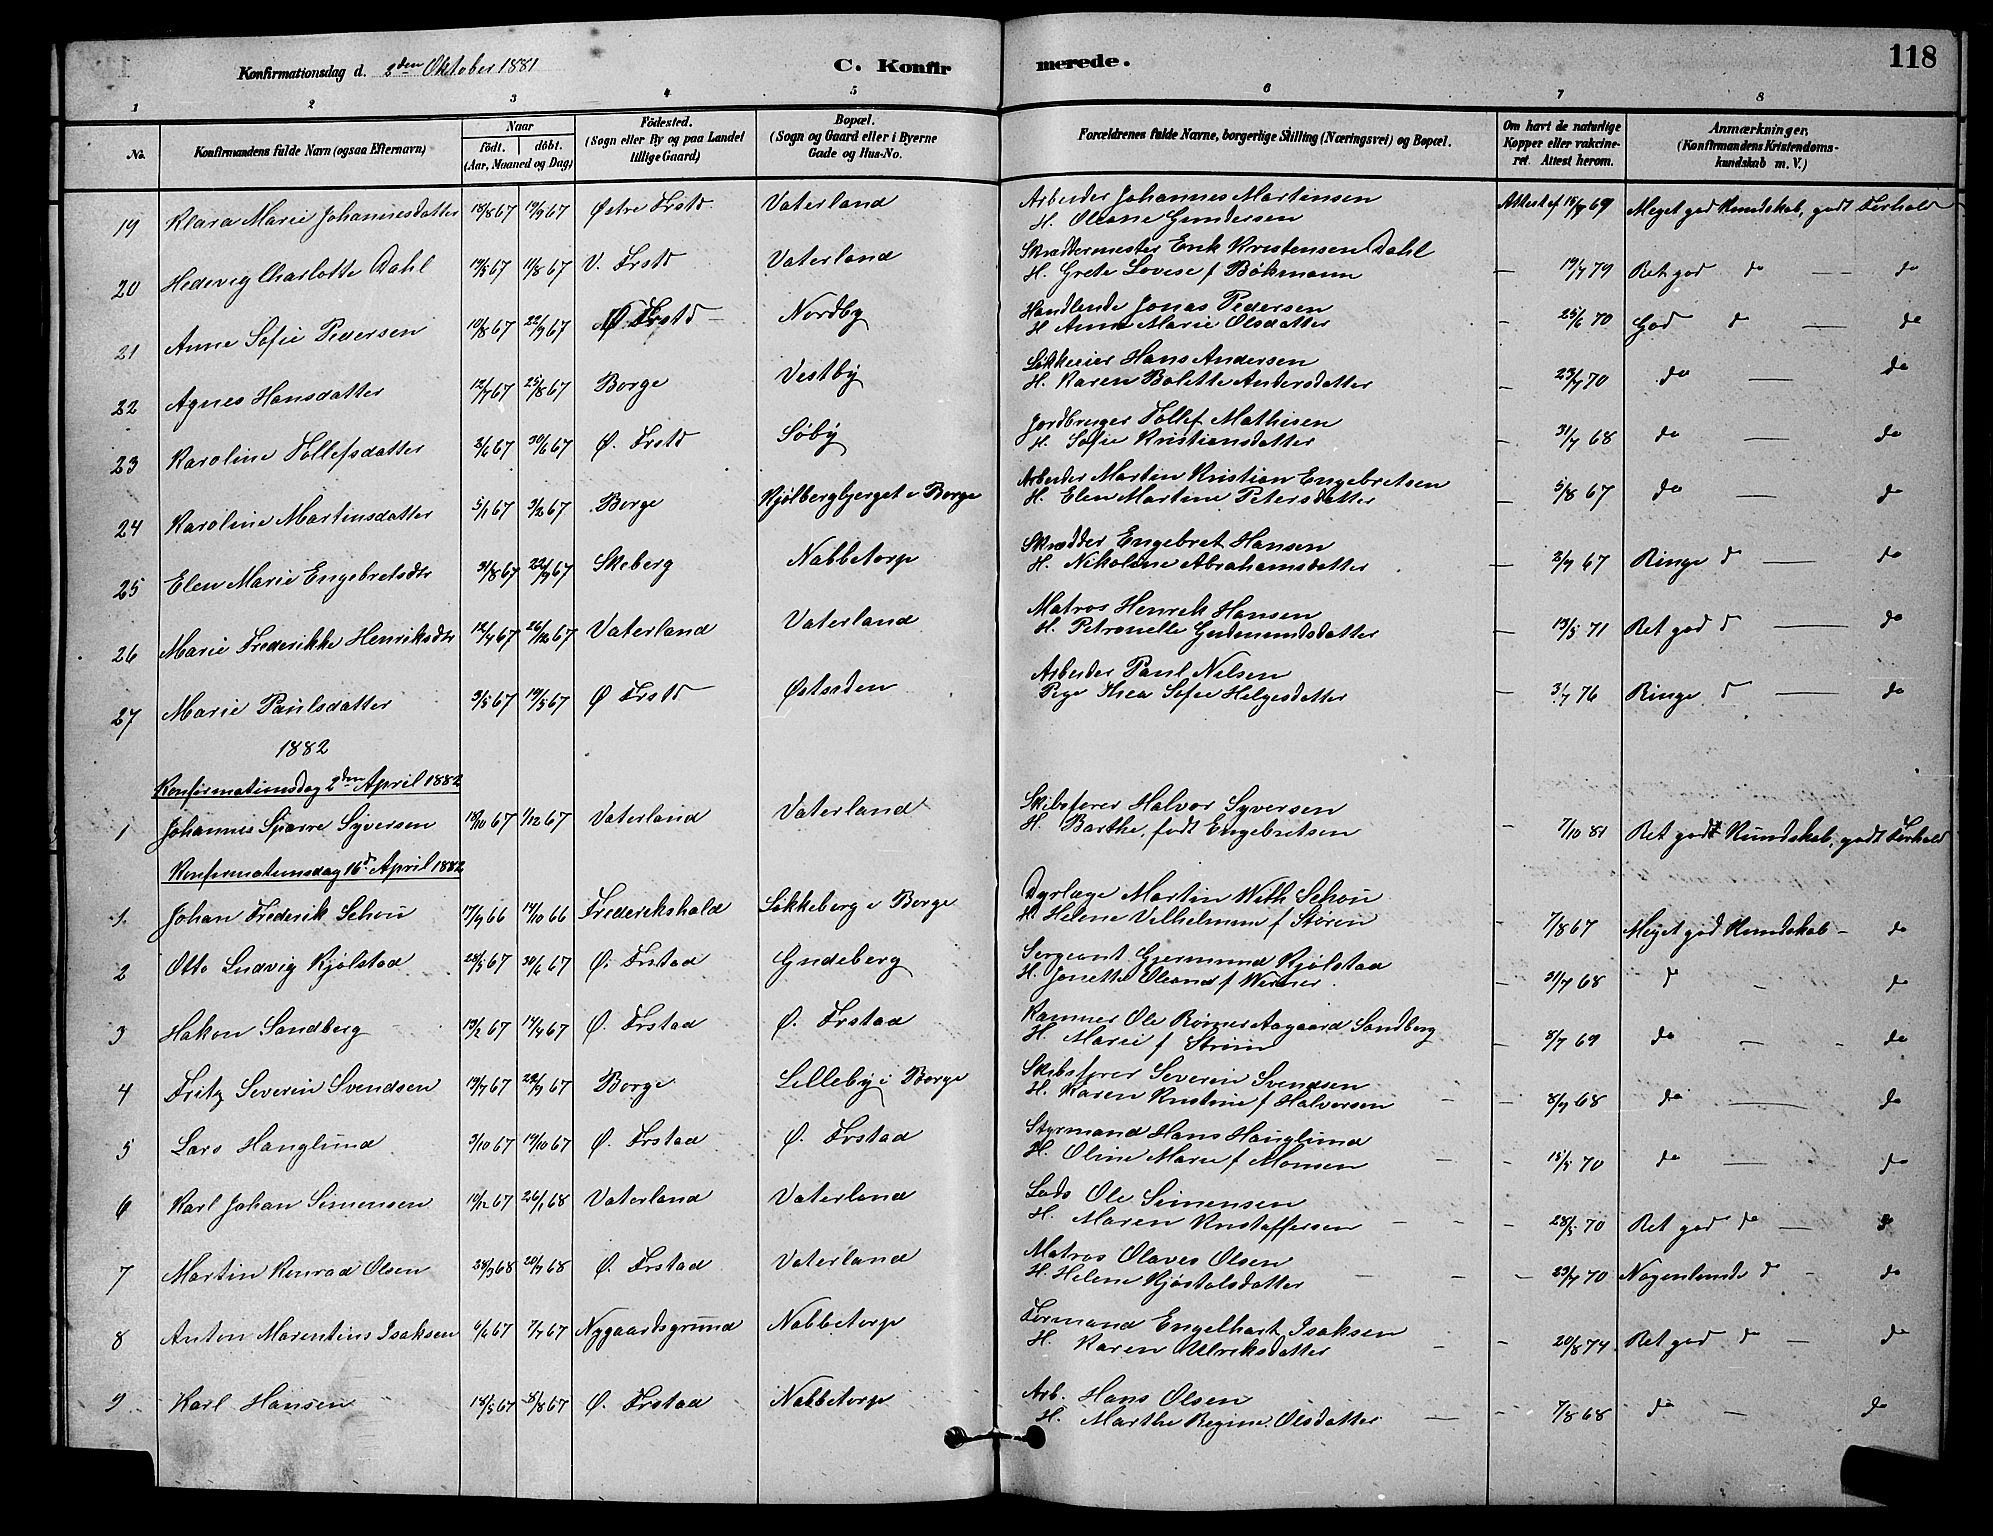 Konfirmationsdag d. 2den Oktober 1881
C. Konfirmerede.
118
1 2 3 4 5 6 7 8
No. Konfirmandens fulde Navn (ogsaa Efternavn) Naar födt. döbt. (Aar, Maaned og Dag) Födested. (Sogn eller By og paa Landet tillige Gaard) Bopæl. (Sogn og Gaard eller i Byerne Gade og Hus-No.) Forældrenes fulde Navne, borgerlige Stilling (Næringsvei) og Bopæl. Om havt de naturlige Kopper eller vakcineret. Attest herom. Anmærkninger, (Konfirmandens Kristendomskundskab m. V.)
19 Klara Marie Johannesdatter 18/8 67 19/9 67 Østre Frstd Vaterland Arbeider Johannes Martinsen
H. Oleane Gundersen Attest af 15/9 69 Meget god Kundskab, godt Forhold
20 Hedevig Charlotte Dahl 19/5 67 11/8 67 V. Frstd Vaterland Skræddermester Erik Kristensen Dahl
H. Grete Lovise f Bökmann – 19/7 79 Ret god do – do
21 Anne Sofie Pedersen 10/8 67 22/9 67 Ø Frstd Nordby Handlende Jonas Pedersen
H. Anne Marie Olsdatter – 25/6 70 God d – do
22 Agnes Hansdatter 12/7 67 25/8 67 Borge Vestby Hans Andersen
H. Karen Bolette Andersdatter – 23/7 70 do – do
23 Karoline Tollefsdatter 2/6 67 30/6 67 Ø. Frstd Søby Jordbruger Tollef Mathisen
H. Sofie Kristiansdatter – 31/7 68 do – do
24 Karoline Martinsdatter 5/1 67 3/2 67 Borge Kjølbergbjerget i Borge Arbeider Martin Kristian Engebretsen
H. Elen Martine Petersdatter – 5/8 67 do – do
25 Elen Marie Engebretsdtr 31/8 67 22/9 67 Skeberg Nabbetorp Skrædder Engebret Hansen
H. Nikoline Abrahamsdatter – 2/7 67 Ringe d – do
26 Marie Frederikke Henriksdtr 12/7 67 26/12 67 Vaterland Vaterland Matros Henrik Hansen
H. Petronelle Gudmundsdatter – 13/5 71 Ret god d – do
27 Marie Paulsdatter 3/5 67 19/5 67 Ø Frstd Østsiden Arbeider Paul Nilsen
Pige Thea Sofie Helgesdatter – 3/7 76 Ringe d – do
1882
Konfirmationsdag 2den April 1882
1 Johannes Sparre Syversen 18/10 67 1/12 67 Vaterland Vaterland Skibsfører Halvor Syversen
H. Barthe, født Engebretsen – 7/10 81 Ret god Kundskab, godt Forhold
Konfirmationsdag 16d April 1882
1 Johan Frederik Schou 17/9 66 14/10 66 Frederikshald Sikkeberg i Borge Dyrlæge Martin With Schou
H. Helene Vilhelmine f Støren – 7/8 67 Meget god Kundskab – do
2 Otto Ludvig Kjølstad 28/5 67 30/6 67 Ø. Frstad Gudeberg Sergeant Gjermund Kjølstad
H. Jonette Oleane f Werner – 31/7 68 d – do
3 Hakon Sandberg 13/2 67 14/4 67 Ø. Frstad Ø. Frstad Ole Rømer Aagaard Sandberg
H. Marie f Strøm – 8/7 69 do – do
4 Fritz Severin Svendsen 19/7 67 29/9 67 Borge Lilleby i Borge Skibsfører Severin Svendsen
H. Karen Kristine f Halvorsen – 8/7 68 do – do
5 Lars Hauglund 3/10 67 19/10 67 Ø. Frstad Ø. Frstad Styrmand Hans Hauglund
H. Oline Marie f Monsen – 15/5 70 do – do
6 Karl Johan Simensen 10/12 67 26/1 68 Vaterland Vaterland Lods Ole Simensen
H. Maren Kristoffersen – 28/5 70 Ret god do – do
7 Martin Konrad Olsen 28/3 68 20/7 68 Ø. Frstad Vaterland Matros Olaves Olsen
H. Helene Kjøstolsdatter – 23/7 70 Nogenlunde d – do
8 Anton Marentius Isaksen 6/6 67 7/7 67 Nygaardsgrund Nabbetorp Formand Engelhart Isaksen
H. Karen Ulriksdatter – 20/8 74 Ret god do – do
9 Karl Hansen 18/5 67 8/8 67 Ø. Frstad Nabbetorp Arb. Hans Olsen
H. Marthe Regine Olsdatter – 7/8 68 do – do